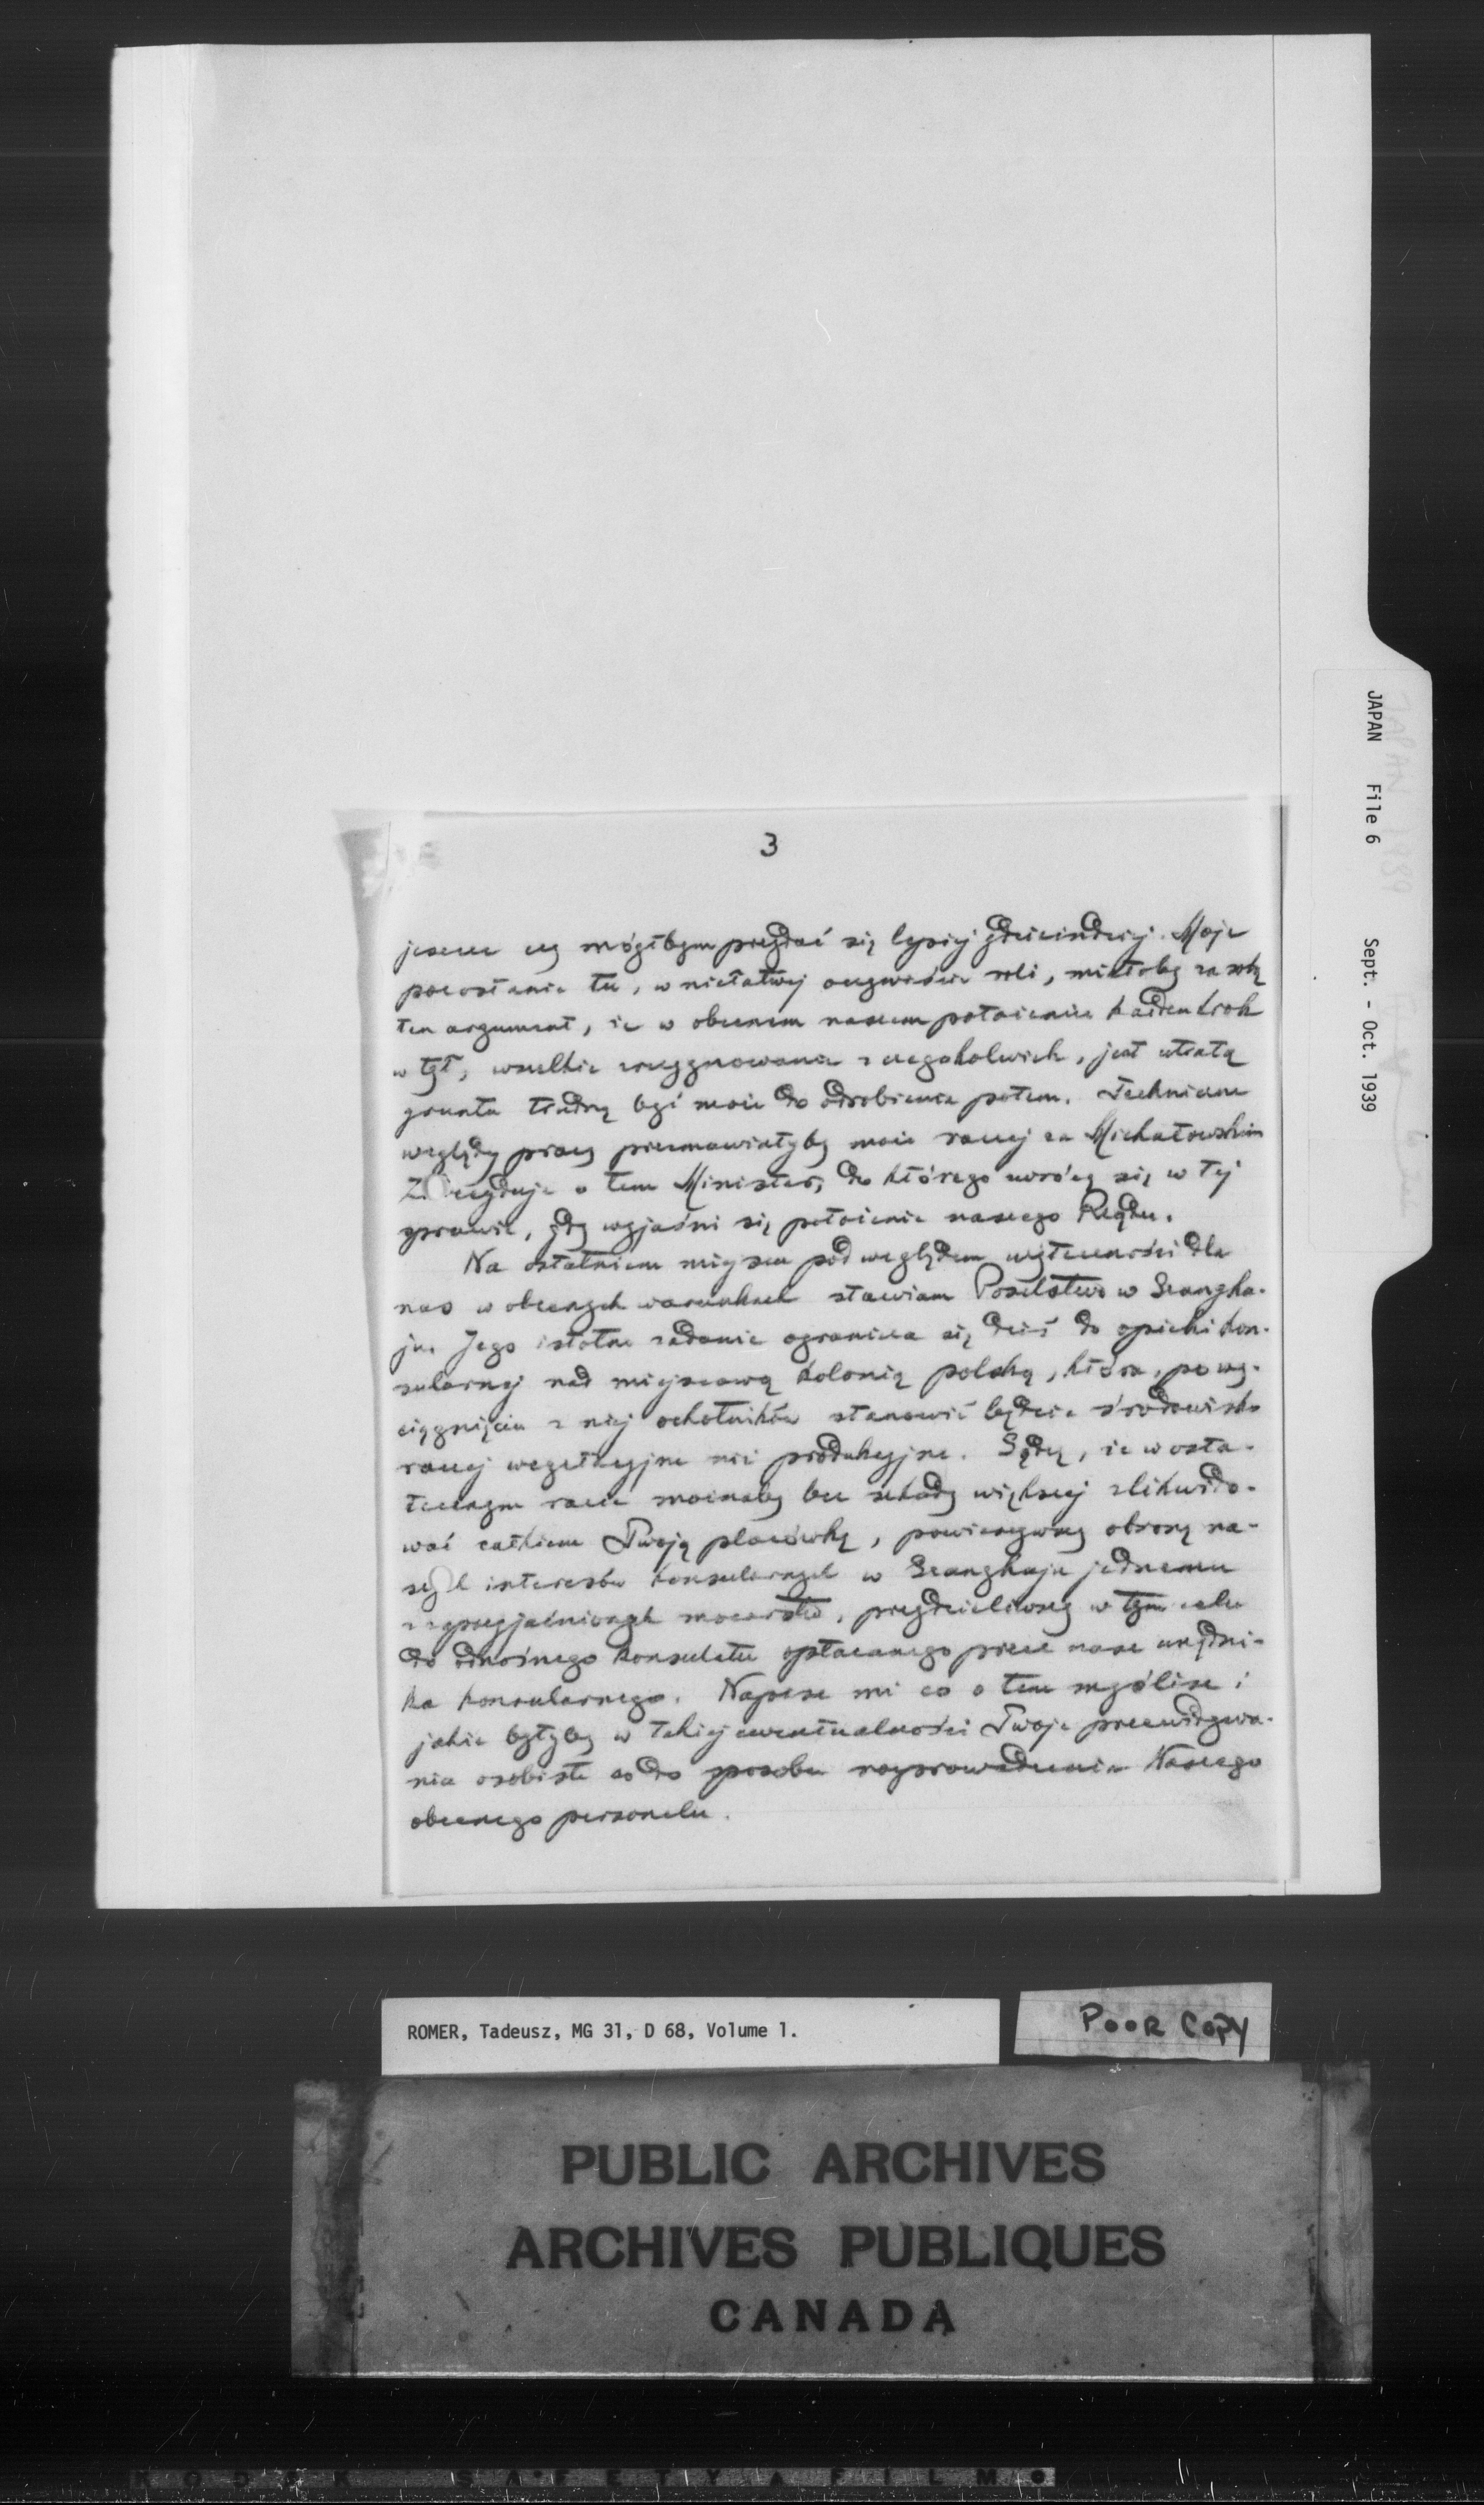 3
jeszcze czy mógłbym przydać się lepiej gdzieindziej. Moje
pozostanie tu, w niełatwej oczywiście roli, miałoby za sobą
ten argument, że w obecnem naszem położeniu każden krok
w tył, wszelkie zrezygnowanie z czegokolwiek, jest utratą
gruntu trudną być może do odrobienia potem. Techniczne
względy pracy przemawiałyby może raczej za Michałowskim
Zdecyduje o tem Minister, do którego zwrócę się w tej
sprawie, gdy wyjaśni się położenie naszego Rządu.
Na ostatniem miejscu pod względem użyteczności dla
nas w obecnych warunkach stawiam Poselstwo w Szangha-
ju. Jego istotne zadanie ogranicza się dziś do opieki kon-
sularnej nad miejscową kolonią polską, która, po wy-
ciągnięciu z niej ochotników stanowić będzie środowisko
raczej wegetacyjne niż produkcyjne. Sądzę, że w osta-
tecznym razie możnaby bez szkody większej zlikwido-
wać całkiem Twoją placówkę, powierzywszy obronę na-
szych interesów konsularnych w Szanghaju jednemu
z zaprzyjaźnionych mocarstw, przydzieliwszy w tym celu
do odnośnego konsulatu opłacanego przez nasz urzędni-
ka konsularnego. Napisz mi co o tem myślisz i
jakie byłyby w takiej ewentualności Twoje przewidywa-
nia osobiste co do sposobu rozprowadzenia Waszego
obecnego personelu.
JAPAN File 6 Sept. - Oct. 1939
ROMER, Tadeusz, MG 31, D 68, Volume 1.
POOR COPY
PUBLIC ARCHIVES
ARCHIVES PUBLIQUES
CANADA
KODAK SAFETY FILM